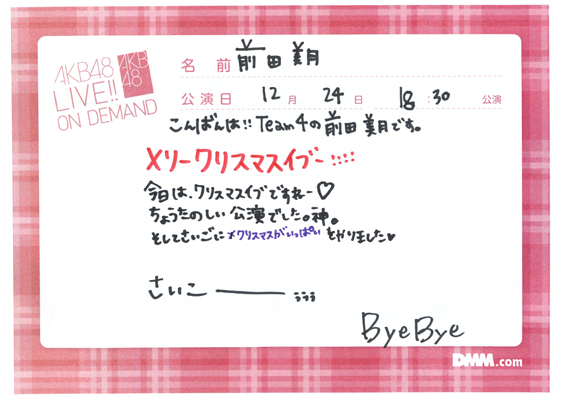 AKB48
LIVE!!
ON DEMAND
AKB
48
名 前 前田 美月
公演日 12 月 24 日 18:30 公演
こんばんは!! Team4の前田美月です。
メリークリスマスイブー!!!!
今日は、クリスマスイブですねー♡
ちょうたのしい公演でした。神。
そしてさいごに×クリスマスがいっぱいをやりました♥
さいこ―――ううう
ByeBye
DMM.com